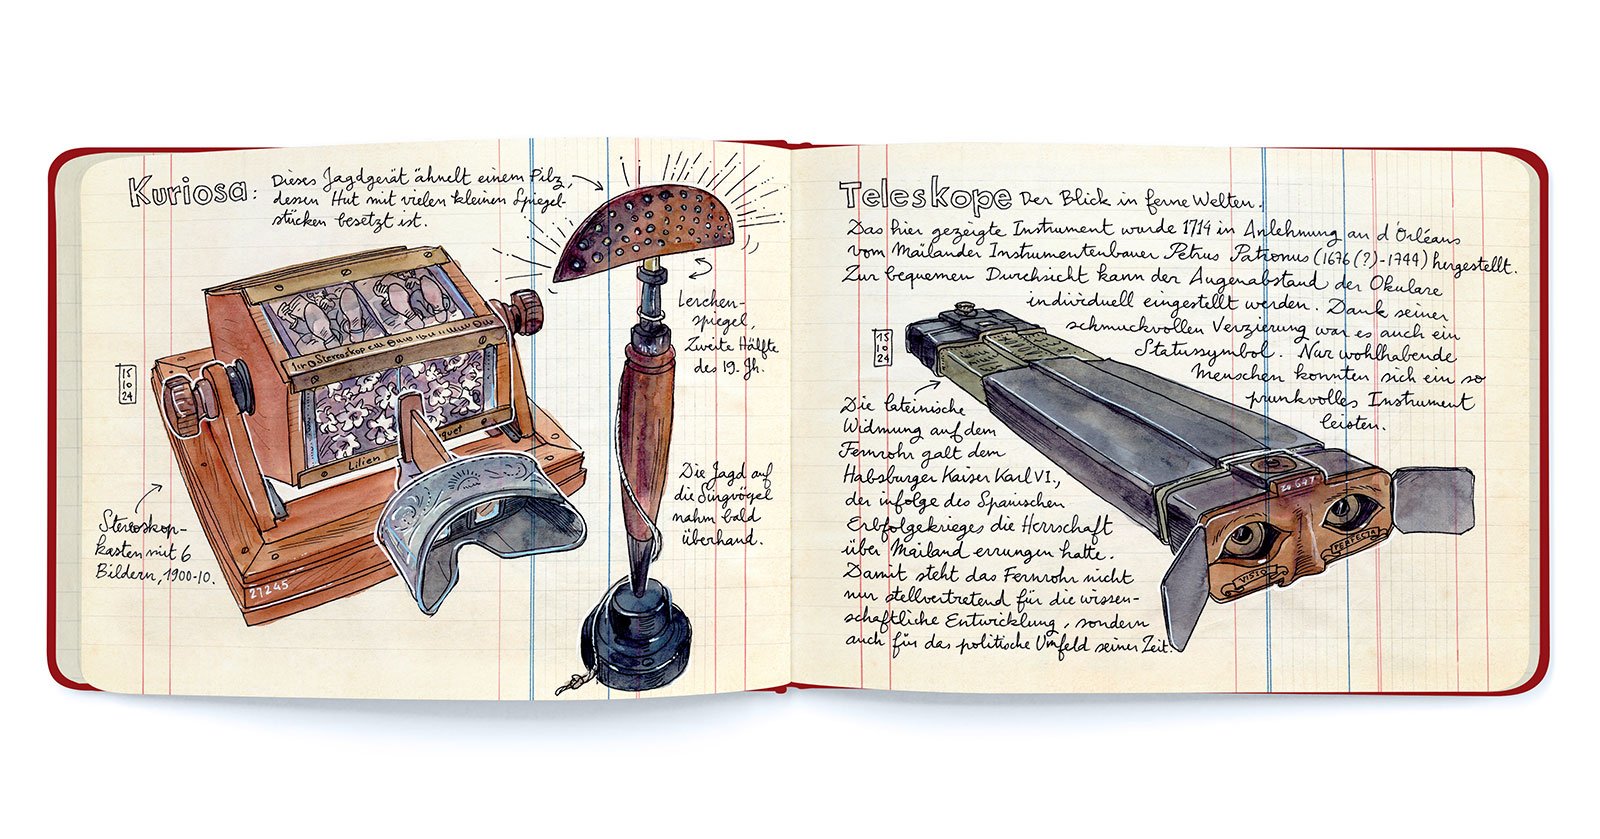 Kuriosa:
Dieses Jagdgerät ähnelt einem Pilz,
dessen Hut mit vielen kleinen Spiegel-
stücken besetzt ist.
Lerchen-
spiegel,
Zweite Hälfte
des 19. Jh.
15
10
24
Stereoskop
Lilien
Stereoskop-
kasten mit 6
Bildern, 1900-10.
27245
Die Jagd auf
die Singvögel
nahm bald
überhand.
Teleskope Der Blick in ferne Welten.
Das hier gezeigte Instrument wurde 1714 in Anlehnung an d'Orléans
vom Mailänder Instrumentenbauer Petrus Patronus (1676(?)-1744) hergestellt.
Zur bequemen Durchsicht kann der Augenabstand der Okulare
individuell eingestellt werden. Dank seiner
schmuckvollen Verzierung war es auch ein
Statussymbol. Nur wohlhabende
Menschen konnten sich ein so
prunkvolles Instrument
leisten.
15
10
24
Die lateinische
Widmung auf dem
Fernrohr galt dem
Habsburger Kaiser Karl VI.,
der infolge des Spanischen
Erbfolgekrieges die Herrschaft
über Mailand errungen hatte.
Damit steht das Fernrohr nicht
nur stellvertretend für die wissen-
schaftliche Entwicklung, sondern
auch für das politische Umfeld seiner Zeit.
VISIO
PERFECTA